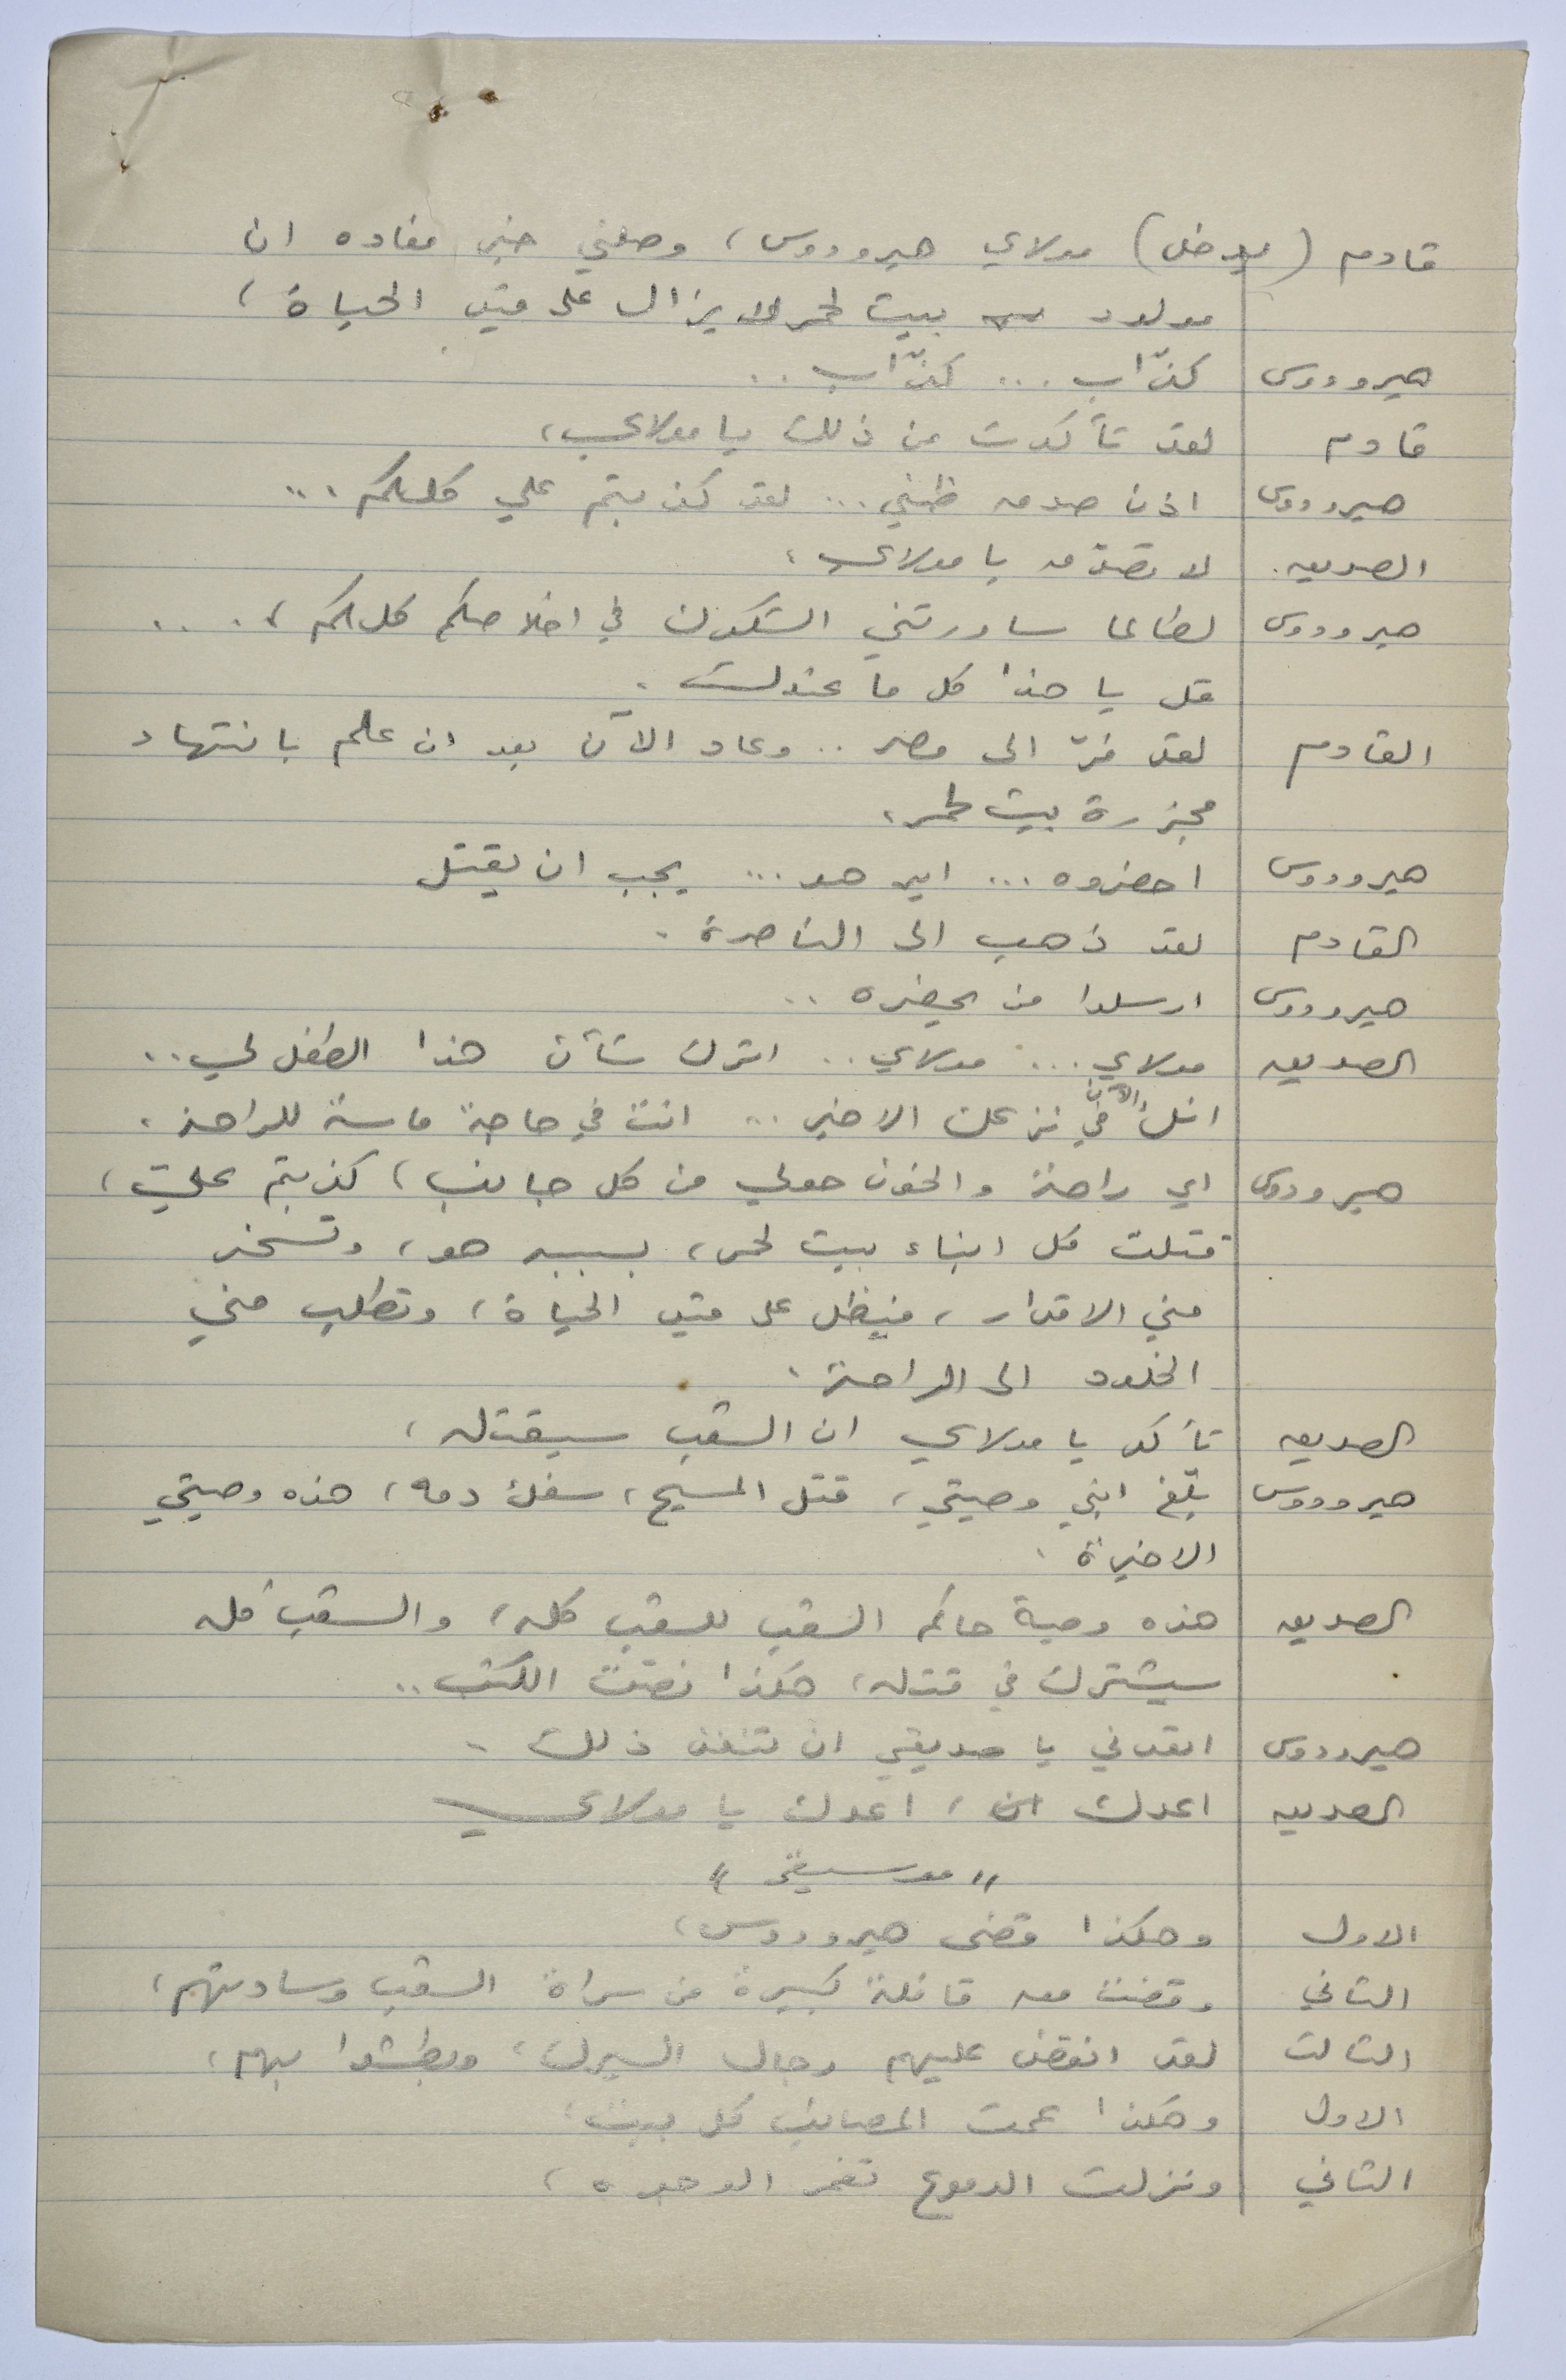 قادم (يدخل) مولاي هيرودوس، وصلني خبر مفاده ان
مولود بيت لحم لا يزال على قيد الحياة،
هيرودوس كذّاب ... كذّاب ..
قادم لقد تأكدت من ذلك يا مولاي،
هيرودوس اذن صدق ظني ... لقد كذبتم علي كلكم ...
الصديق. لا تصدق يا مولاي،
هيرودوس لطالما ساورتني الشكوك في اخلاصكم كلكم، ...
قل يا هذا كل ما عندك.
القادم لقد فرّ الى مصر .. وعاد الآن بعد ان علم بانتهاء
مجزرة بيت لحم،
هيرودوس احضروه ... اين هو ... يجب ان يقتل
القادم لقد ذهب الى الناصرة.
هيرودوس ارسلوا من يحضره ..
الصديق مولاي ... مولاي .. اترك شأن هذا الطفل لي ..
انك الآن في نزعك الاخير .. انت في حاجة ماسة للراحة.
هيرودوس اي راحة والخوف حولي من كل جانب، كذبتم عليّ،
قتلت كل ابناء بيت لحم، بسببه هو، وتسخر
مني الاقدار، فيظل على قيد الحياة، وتطلب مني
الخلود الى الراحة.
الصديق تأكد يا مولاي ان الشعب سيقتله،
هيرودوس بلّغ ابني وصيتي، قتل المسيح، سفك دمه، هذه وصيتي
الاخيرة.
الصديق هذه وصية حاكم الشعب للشعب كله، والشعب كله
سيشترك في قتله، هكذا نصّت الكتب ..
هيرودوس اتعدني يا صديقي ان تنفذ ذلك.
الصديق اعدك، اعدك يا مولاي
"موسيقى"
الاول وهكذا قضى هيرودوس،
الثاني وقضت معه قافلة كبيرة من سراة الشعب وسادتهم،
الثالث لقد انقض عليهم رجال السيرك، وبطشوا بهم،
الاول وهكذا عمت المصائب كل بيت،
الثاني ونزلت الدموع تغمر الوجوه،